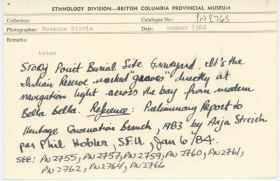 ETHNOLOGY DIVISION—BRITISH COLUMBIA PROVINCIAL MUSEUM
Collection: Catalogue No.: PN2765
Photographer: Susanne Storie Date: summer 1968
Remarks:
totem
Story Point Burial Site Graveyard. It's the
Indian Reserve marked "graves" directly at
navigation light across the bay from modern
Bella Bella. Reference: Preliminary Report to
Heritage Conservation Branch, 1983 by Anja Streich
per Phil Hobler, SFU, Jan 6/84.
SEE: PN2755, PN2757, PN2759, PN2760, PN2761,
PN2762, PN2764, PN2766